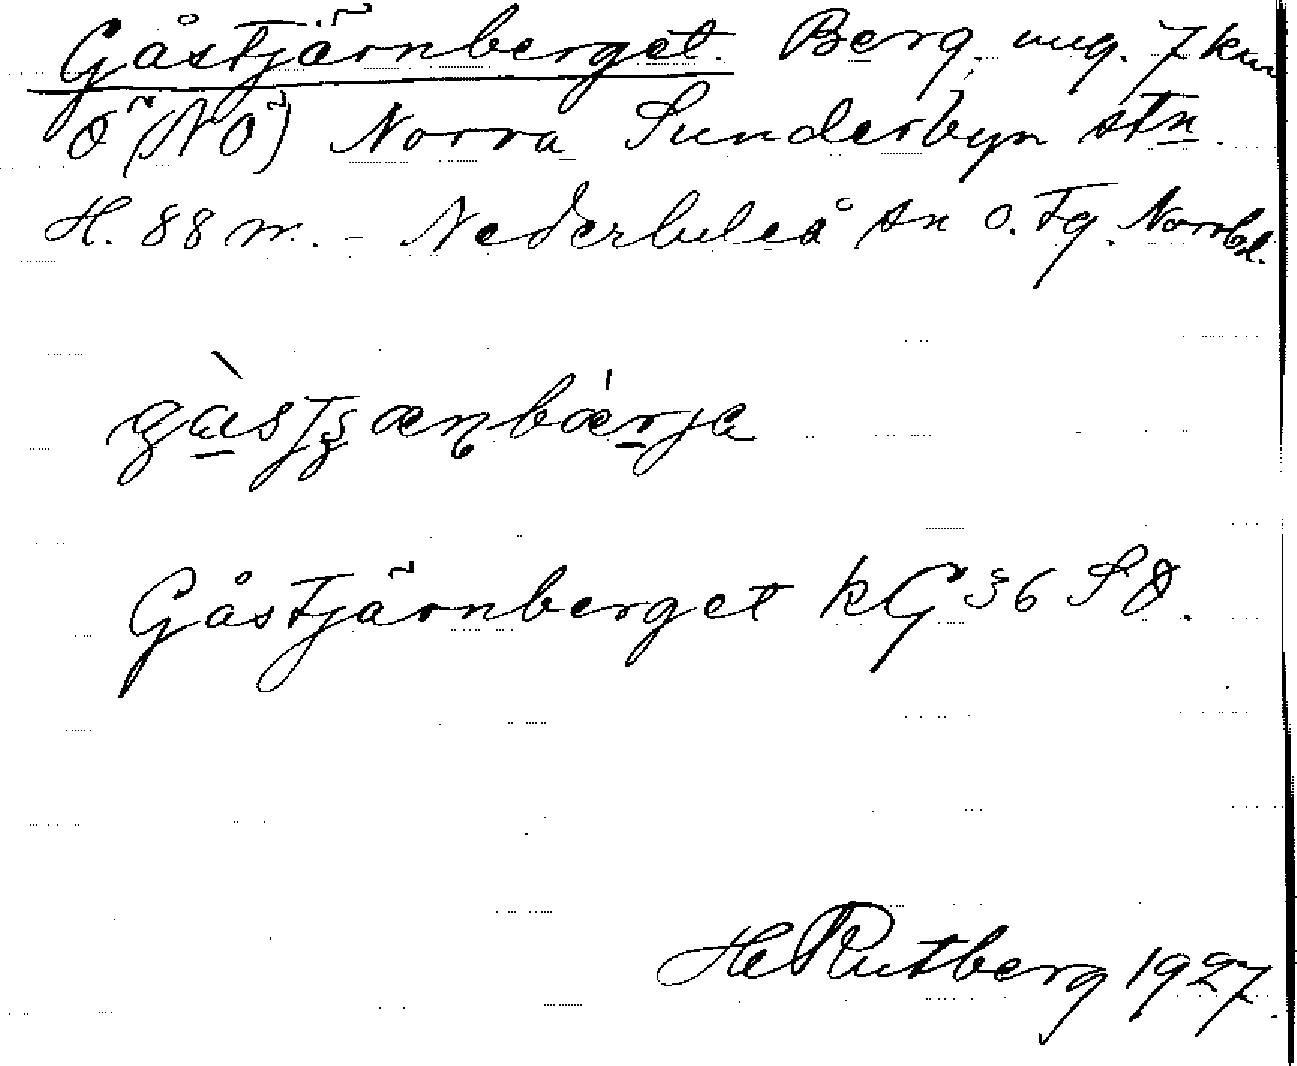 Gåstjärnberget. Berg. ung. 7 km
Ö (NÖ) Norra Sunderbyn stn.
H. 88 m. - Nederluleå sn o. tg. Norrb.l.
gàstʂænbárja
Gåstjärnberget kG 36 SÖ.
He Rutberg 1927.